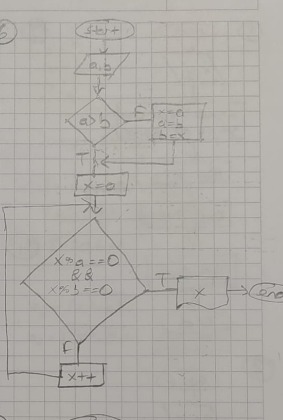 6
start
a,b
a>b
F
x=a
a=b
b=x
T
x=a
x%a==0
&&
x%b==0
T
x
end
F
x++